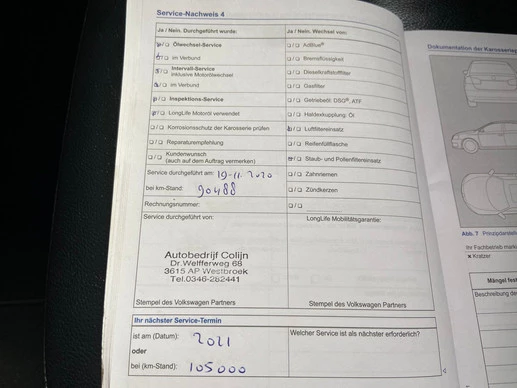 Service-Nachweis 4
Ja / Nein. Durchgeführt wurde:
Ölwechsel-Service
im Verbund
Intervall-Service
inklusive Motorölwechsel
im Verbund
Inspektions-Service
LongLife Motoröl verwendet
Korrosionsschutz der Karosserie prüfen
Reparaturempfehlung
Kundenwunsch
(auch auf dem Auftrag vermerken)
Service durchgeführt am: 19-11-2020
bei km-Stand: 90488
Rechnungsnummer:
Service durchgeführt von:
Autobedrijf Colijn
Dr. Welfferweg 68
3615 AP Westbroek
Tel.0346-282441
Stempel des Volkswagen Partners
Ja / Nein. Wechsel von:
AdBlue®
Bremsflüssigkeit
Dieselkraftstofffilter
Gasfilter
Getriebeöl: DSG®, ATF
Haldexkupplung: Öl
Luftfiltereinsatz
Reifenfüllflasche
Staub- und Pollenfiltereinsatz
Zahnriemen
Zündkerzen
LongLife Mobilitätsgarantie:
Stempel des Volkswagen Partners
Ihr nächster Service-Termin
ist am (Datum): 2021
oder
bei (km-Stand): 105000
Welcher Service ist als nächster erforderlich?
Dokumentation der Karosserie
Abb. 7
Ihr Fachbetrieb
× Kratzer
Mängel
Beschreibung